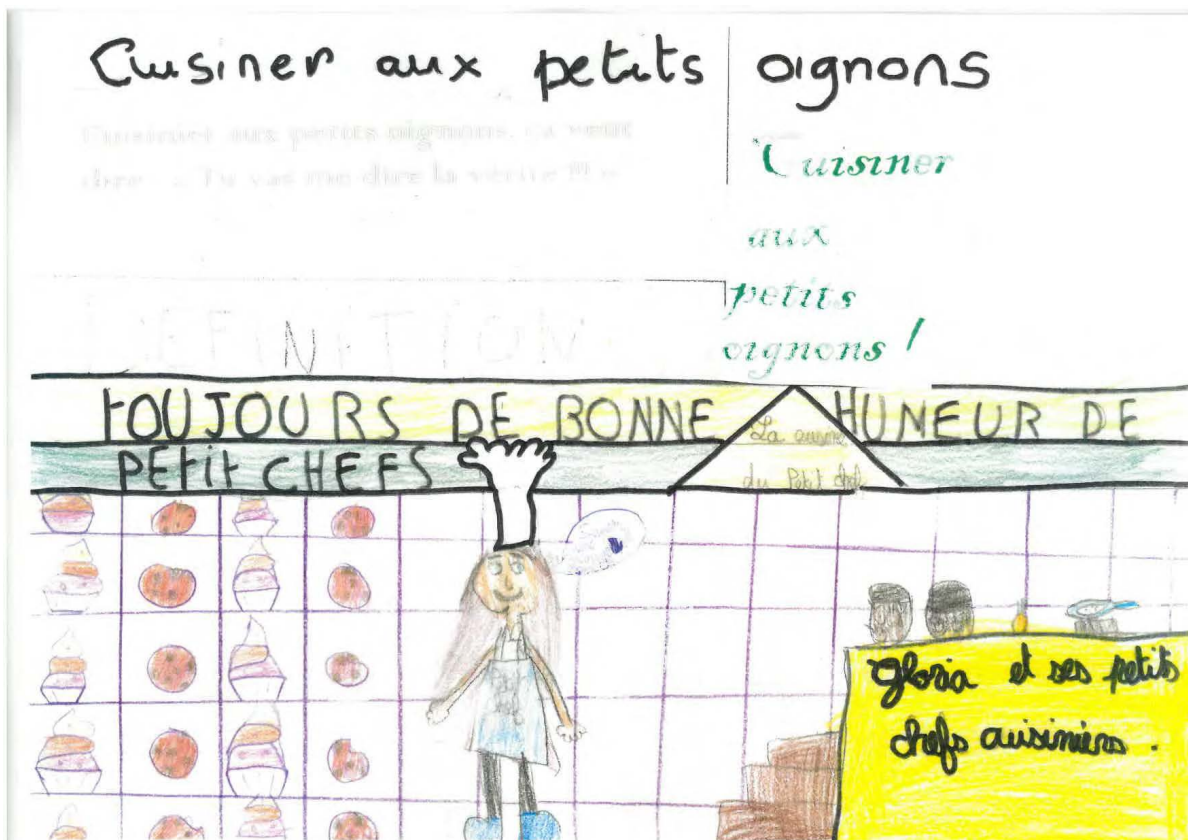 Cuisiner aux petits oignons
Cuisiner aux petits oignons, ça veut
dire : « Tu vas me dire la vérité !!! »
Cuisiner
aux
petits
oignons !
DEFINITION
tOUJOURS DE BONNE HUNEUR DE
PEtit CHEFS
La cuisine
du Petit chef
Gloria et ses petits
chefs cuisiniers.